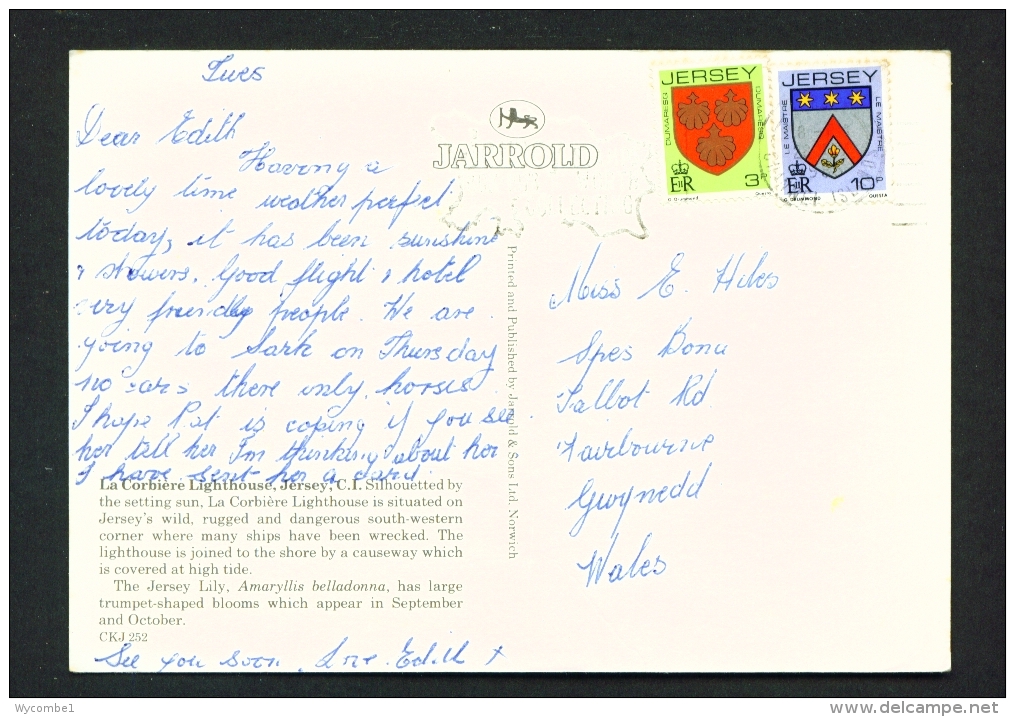 Tues
Dear Edith
Having a
lovely time weather perfect
today, it has been sunshine
& showers. Good flight & hotel
very friendly people. We are
going to Sark on Thursday
no cars there only horses.
I hope Pat is coping if you see
her tell her I'm thinking about her
I have sent her a card.
La Corbière Lighthouse, Jersey, C.I. Silhouetted by
the setting sun, La Corbière Lighthouse is situated on
Jersey's wild, rugged and dangerous south-western
corner where many ships have been wrecked. The
lighthouse is joined to the shore by a causeway which
is covered at high tide.
The Jersey Lily, Amaryllis belladonna, has large
trumpet-shaped blooms which appear in September
and October.
CKJ 252
See you soon. Love. Edith x
JARROLD
Printed and Published by Jarrold & Sons Ltd. Norwich
JERSEY
DUMARESQ
DUMARESQ
EIIR
3P
G DRUMMOND
JERSEY
LE MAISTRE
LE MAISTRE
EIIR
10P
G DRUMMOND
QUESTA
Miss E. Hiles
Spes Bona
Talbot Rd
Fairbourne
Gwynedd
Wales
Wycombe1
delcampe.net